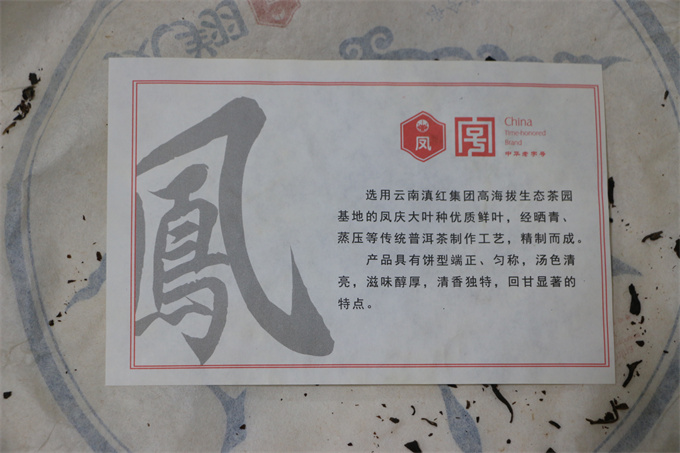 鳳
凤
China
Time-honored
Brand
中华老字号
选用云南滇红集团高海拔生态茶园
基地的凤庆大叶种优质鲜叶，经晒青、
蒸压等传统普洱茶制作工艺，精制而成。
产品具有饼型端正、匀称，汤色清
亮，滋味醇厚，清香独特，回甘显著的
特点。